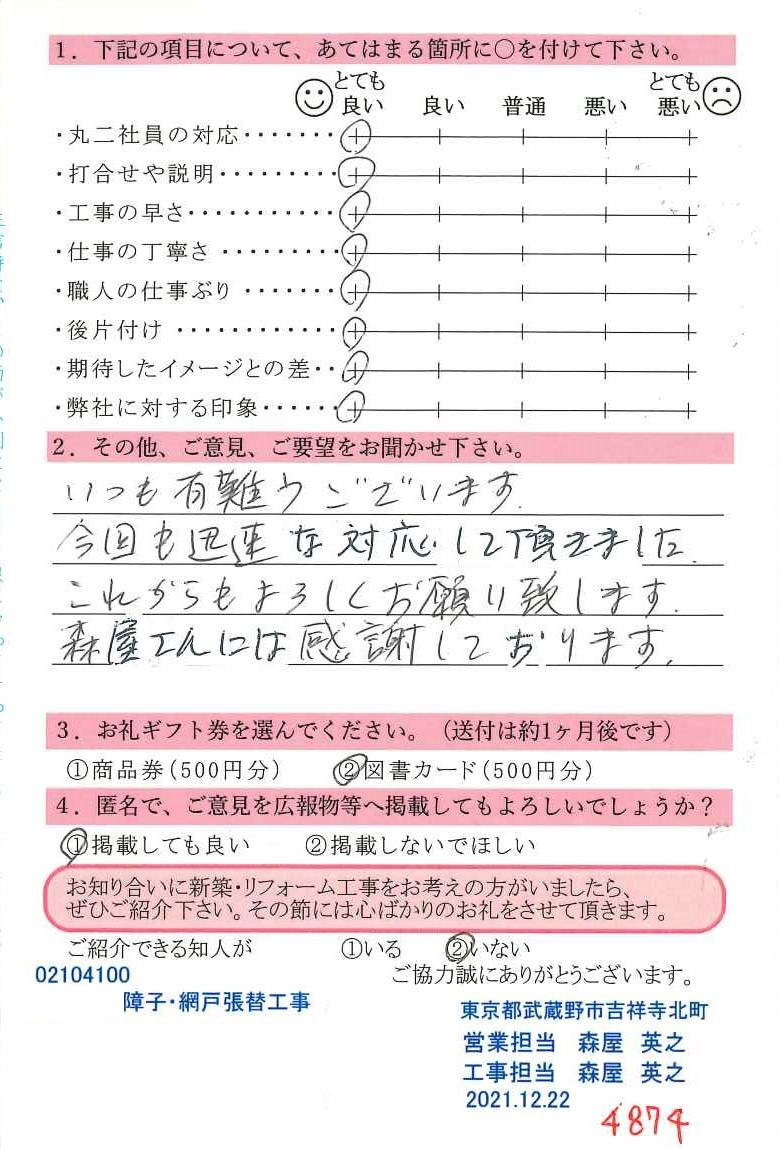 1．下記の項目について、あてはまる箇所に〇を付けて下さい。
とても良い 良い 普通 悪い とても悪い
・丸二社員の対応・・・・・・・
・打合せや説明・・・・・・・・・
・工事の早さ・・・・・・・・・・・
・仕事の丁寧さ・・・・・・・・・
・職人の仕事ぶり・・・・・・・
・後片付け・・・・・・・・・・・・
・期待したイメージとの差・・
・弊社に対する印象・・・・・・
2．その他、ご意見、ご要望をお聞かせ下さい。
いつも有難うございます.
今回も迅速な対応して頂きました.
これからもよろしくお願い致します.
森屋さんには感謝しております.
3．お礼ギフト券を選んでください。（送付は約1ヶ月後です）
①商品券（500円分） ②図書カード（500円分）
4．匿名で、ご意見を広報物等へ掲載してもよろしいでしょうか？
①掲載しても良い ②掲載しないでほしい
お知り合いに新築・リフォーム工事をお考えの方がいましたら、
ぜひご紹介下さい。その節には心ばかりのお礼をさせて頂きます。
ご紹介できる知人が ①いる ②いない
02104100 ご協力誠にありがとうございます。
障子・網戸張替工事
東京都武蔵野市吉祥寺北町
営業担当 森屋 英之
工事担当 森屋 英之
2021.12.22
4874